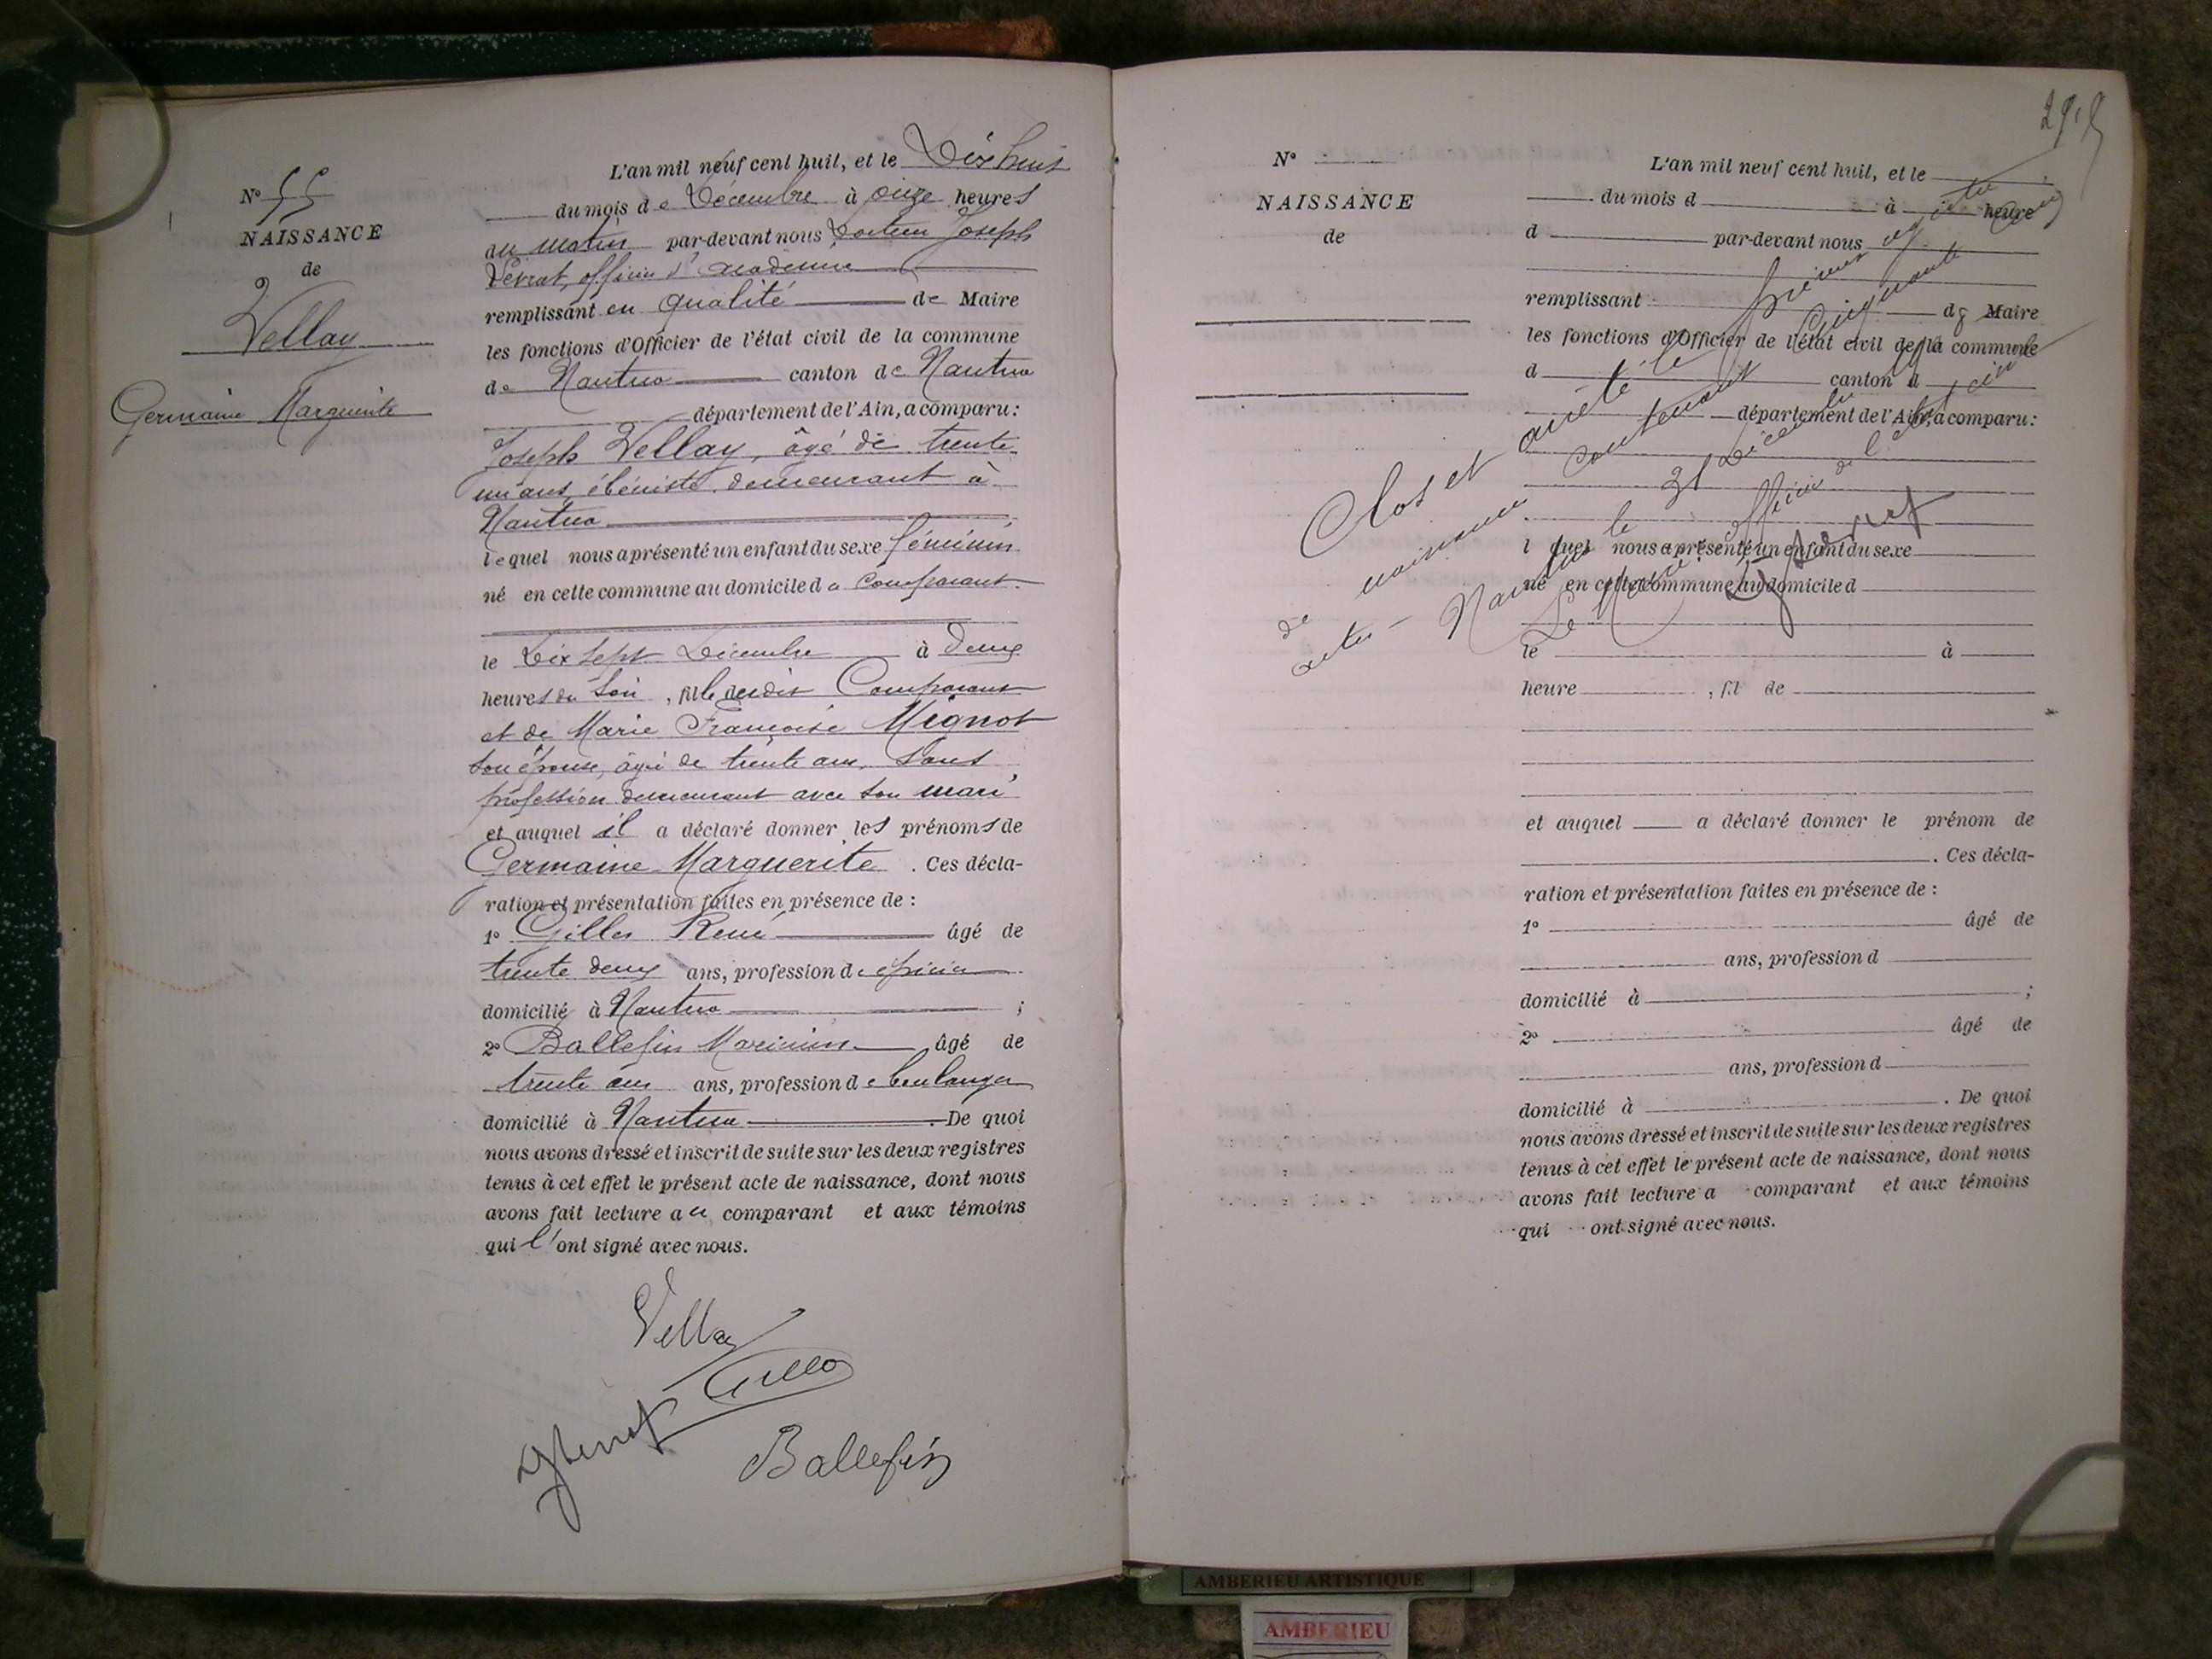 N° 55
NAISSANCE
de
Vellay
Germaine Marguerite
L'an mil neuf cent huit, et le Dix huit
du mois de Décembre à onze heures
du matin par-devant nous Docteur Joseph
Levrat, officier d'académie
remplissant en qualité de Maire
les fonctions d'Officier de l'état civil de la commune
de Nantua canton de Nantua
département de l'Ain, a comparu :
Joseph Vellay, âgé de trente
un ans, ébéniste demeurant à
Nantua
lequel nous a présenté un enfant du sexe féminin
né en cette commune au domicile du comparant
le Dix sept Décembre à deux
heures du soir, fille dudit Comparant
et de Marie Françoise Mignot
son épouse, âgée de trente ans, sans
profession demeurant avec son mari
et auquel il a déclaré donner les prénoms de
Germaine Marguerite. Ces décla-
ration et présentation faites en présence de :
1° Gilles René âgé de
trente deux ans, profession d épicier
domicilié à Nantua ;
2° Ballefin Maximin âgé de
trente ans ans, profession de boulanger
domicilié à Nantua. De quoi
nous avons dressé et inscrit de suite sur les deux registres
tenus à cet effet le présent acte de naissance, dont nous
avons fait lecture au comparant et aux témoins
qui l'ont signé avec nous.
Vellay
Ballefin
N°
NAISSANCE
de
L'an mil neuf cent huit, et le
du mois d à heure
d par-devant nous
remplissant de Maire
les fonctions d'Officier de l'état civil de la commune
d canton d
département de l'Ain, a comparu :
l quel nous a présenté un enfant du sexe
né en cette commune au domicile d
le à
heure , fil de
et auquel a déclaré donner le prénom de
. Ces décla-
ration et présentation faites en présence de :
1° âgé de
ans, profession d
domicilié à ;
2° âgé de
ans, profession d
domicilié à . De quoi
nous avons dressé et inscrit de suite sur les deux registres
tenus à cet effet le présent acte de naissance, dont nous
avons fait lecture a comparant et aux témoins
qui ont signé avec nous.
Clos et arrêté le présent registre
de naissance contenant Cinquante cinq
actes - Nantua le 31 Décembre
Le Maire, officier de l'état civil
AMBERIEU ARTISTIQUE
AMBERIEU